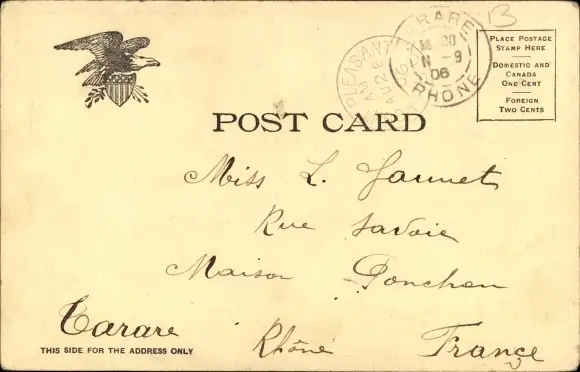 B
PLACE POSTAGE
STAMP HERE
DOMESTIC AND
CANADA
ONE CENT
FOREIGN
TWO CENTS
PLEASANT
AUG 28
TARARE
9
06
RHÔNE
POST CARD
Miss L. Jannet
Rue Savoie
Maison Ponchon
Tarare
Rhône France
THIS SIDE FOR THE ADDRESS ONLY